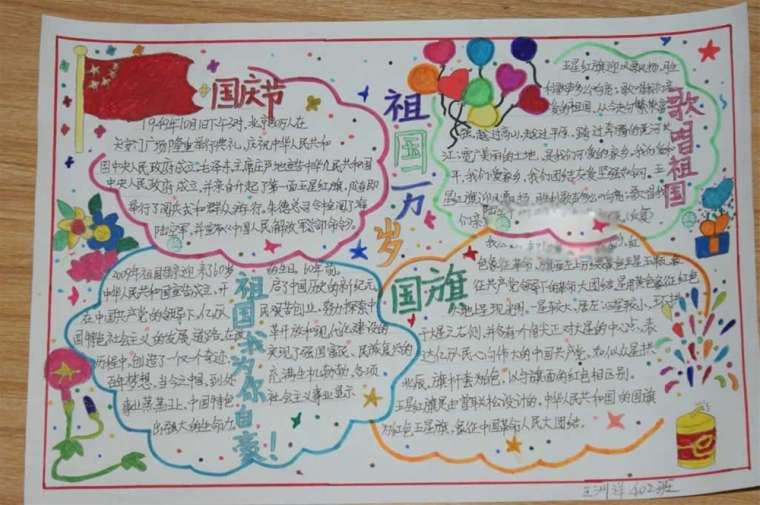 国庆节
1949年10月1日下午3时,北京30万人在
天安门广场隆重举行典礼,庆祝中华人民共和
国中央人民政府成立。毛泽东主席庄严地宣告中华人民共和国
中央人民政府成立,并亲自升起了第一面五星红旗。
举行了阅兵式和群众游行。朱德总司令检阅了海
陆空军,并宣布《中国人民解放军总部命令》。
祖国万岁
歌唱祖国
五星红旗迎风飘扬,胜
利歌声多么响亮;歌唱我们亲
爱的祖国,从今走向繁荣富
强。越过高山,越过平原,跨过奔腾的黄河长
江;宽广美丽的土地,是我们可爱的家乡,
我们爱家乡,我们团结友爱坚强如钢。五
星红旗迎风飘扬,胜利歌声多么响亮;歌唱我
祖国我为你自豪!
2009年祖国母亲迎来了60岁的生日,60年前,
中华人民共和国宣告成立,开启了中国历史的新纪元。
在中国共产党的领导下,亿万人民艰苦创业,努力探索中
国特色社会主义的发展道路。在改革开放和现代化建设的
历程中,创造了一个又一个奇迹,实现了强国富民、民族复兴的
百年梦想。当今之中国,到处充满生机勃勃,各项
事业蒸蒸日上,中国特色社会主义事业显示
出强大的生命力
国旗
色象征革命,
征共产党领导下的革命大团结,星用黄色象征红色
大地上呈现光明。一星较大,居左;四星较小,环拱
于大星之右侧,并各有一个角尖正对大星的中心点,表
达亿万人民心向伟大的中国共产党,如似众星拱
北辰。旗杆套为白色,以与旗面的红色相区别。
五星红旗是由曾联松设计的。中华人民共和国的国旗
为红色五星旗,象征中国革命人民大团结。
402班